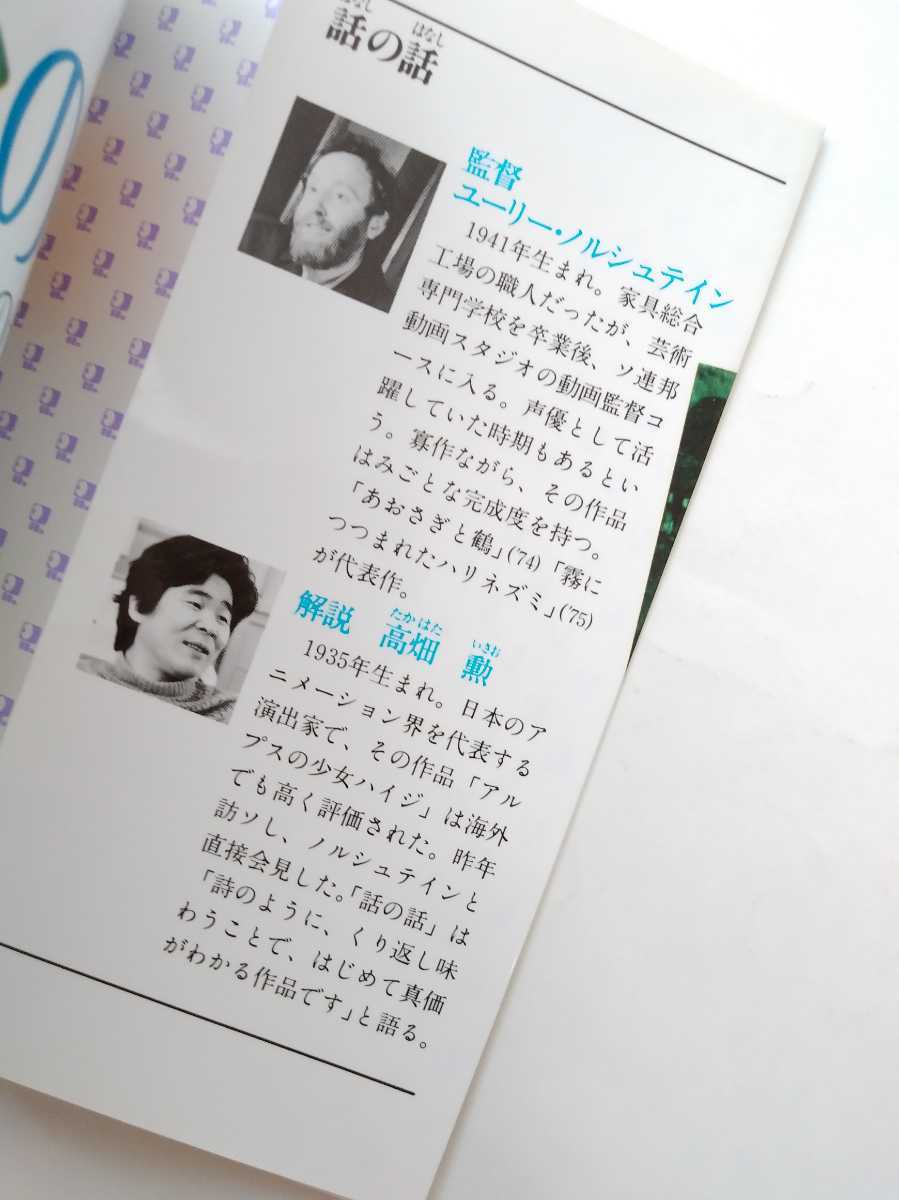 はなし はなし
話の話
監督
ユーリー・ノルシュテイン
1941年生まれ。家具総合
工場の職人だったが、芸術
専門学校を卒業後、ソ連邦
動画スタジオの動画監督コ
ースに入る。声優として活
躍していた時期もあるとい
う。寡作ながら、その作品
はみごとな完成度を持つ。
「あおさぎと鶴」('74)「霧に
つつまれたハリネズミ」('75)
が代表作。
たかはた いさお
解説 高畑 勲
1935年生まれ。日本のア
ニメーション界を代表する
演出家で、その作品「アル
プスの少女ハイジ」は海外
でも高く評価された。昨年
訪ソし、ノルシュテインと
直接会見した。「話の話」は
「詩のように、くり返し味
わうことで、はじめて真価
がわかる作品です」と語る。